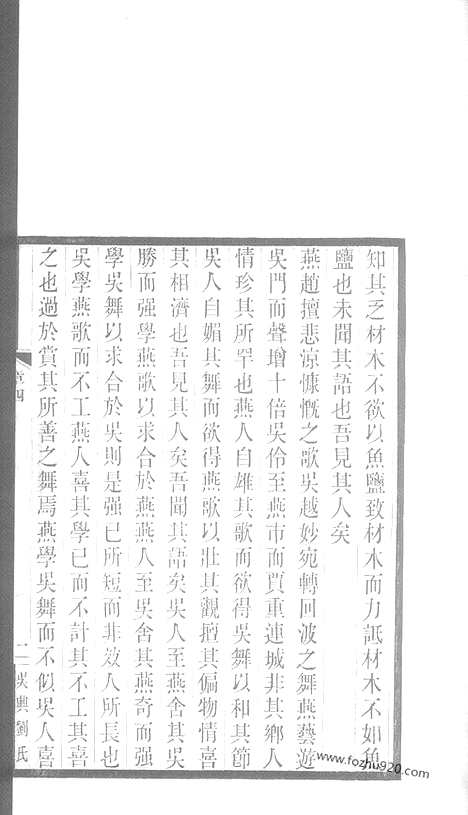 知其乏材木不欲以魚鹽致材木而力詆材木不如魚
鹽也未聞其語也吾見其人矣
燕趙擅悲涼慷慨之歌吳越妙宛轉回波之舞燕藝遊
吳門而聲增十倍吳伶至燕市而質重連城非其鄉人
情珍其所罕也燕人自雄其歌而欲得吳舞以和其節
吳人自媚其舞而欲得燕歌以壯其觀擅其偏物情喜
其相濟也吾見其人矣吾聞其語矣吳人至燕舍其吳
勝而强學燕歌以求合於燕燕人至吳舍其燕奇而强
學吳舞以求合於吳則是强已所短而非效人所長也
吳學燕歌而不工燕人喜其學已而不計其不工其喜
之也過於賞其所善之舞焉燕學吳舞而不似吳人喜
四
吳興劉氏
www.fozhu920.com